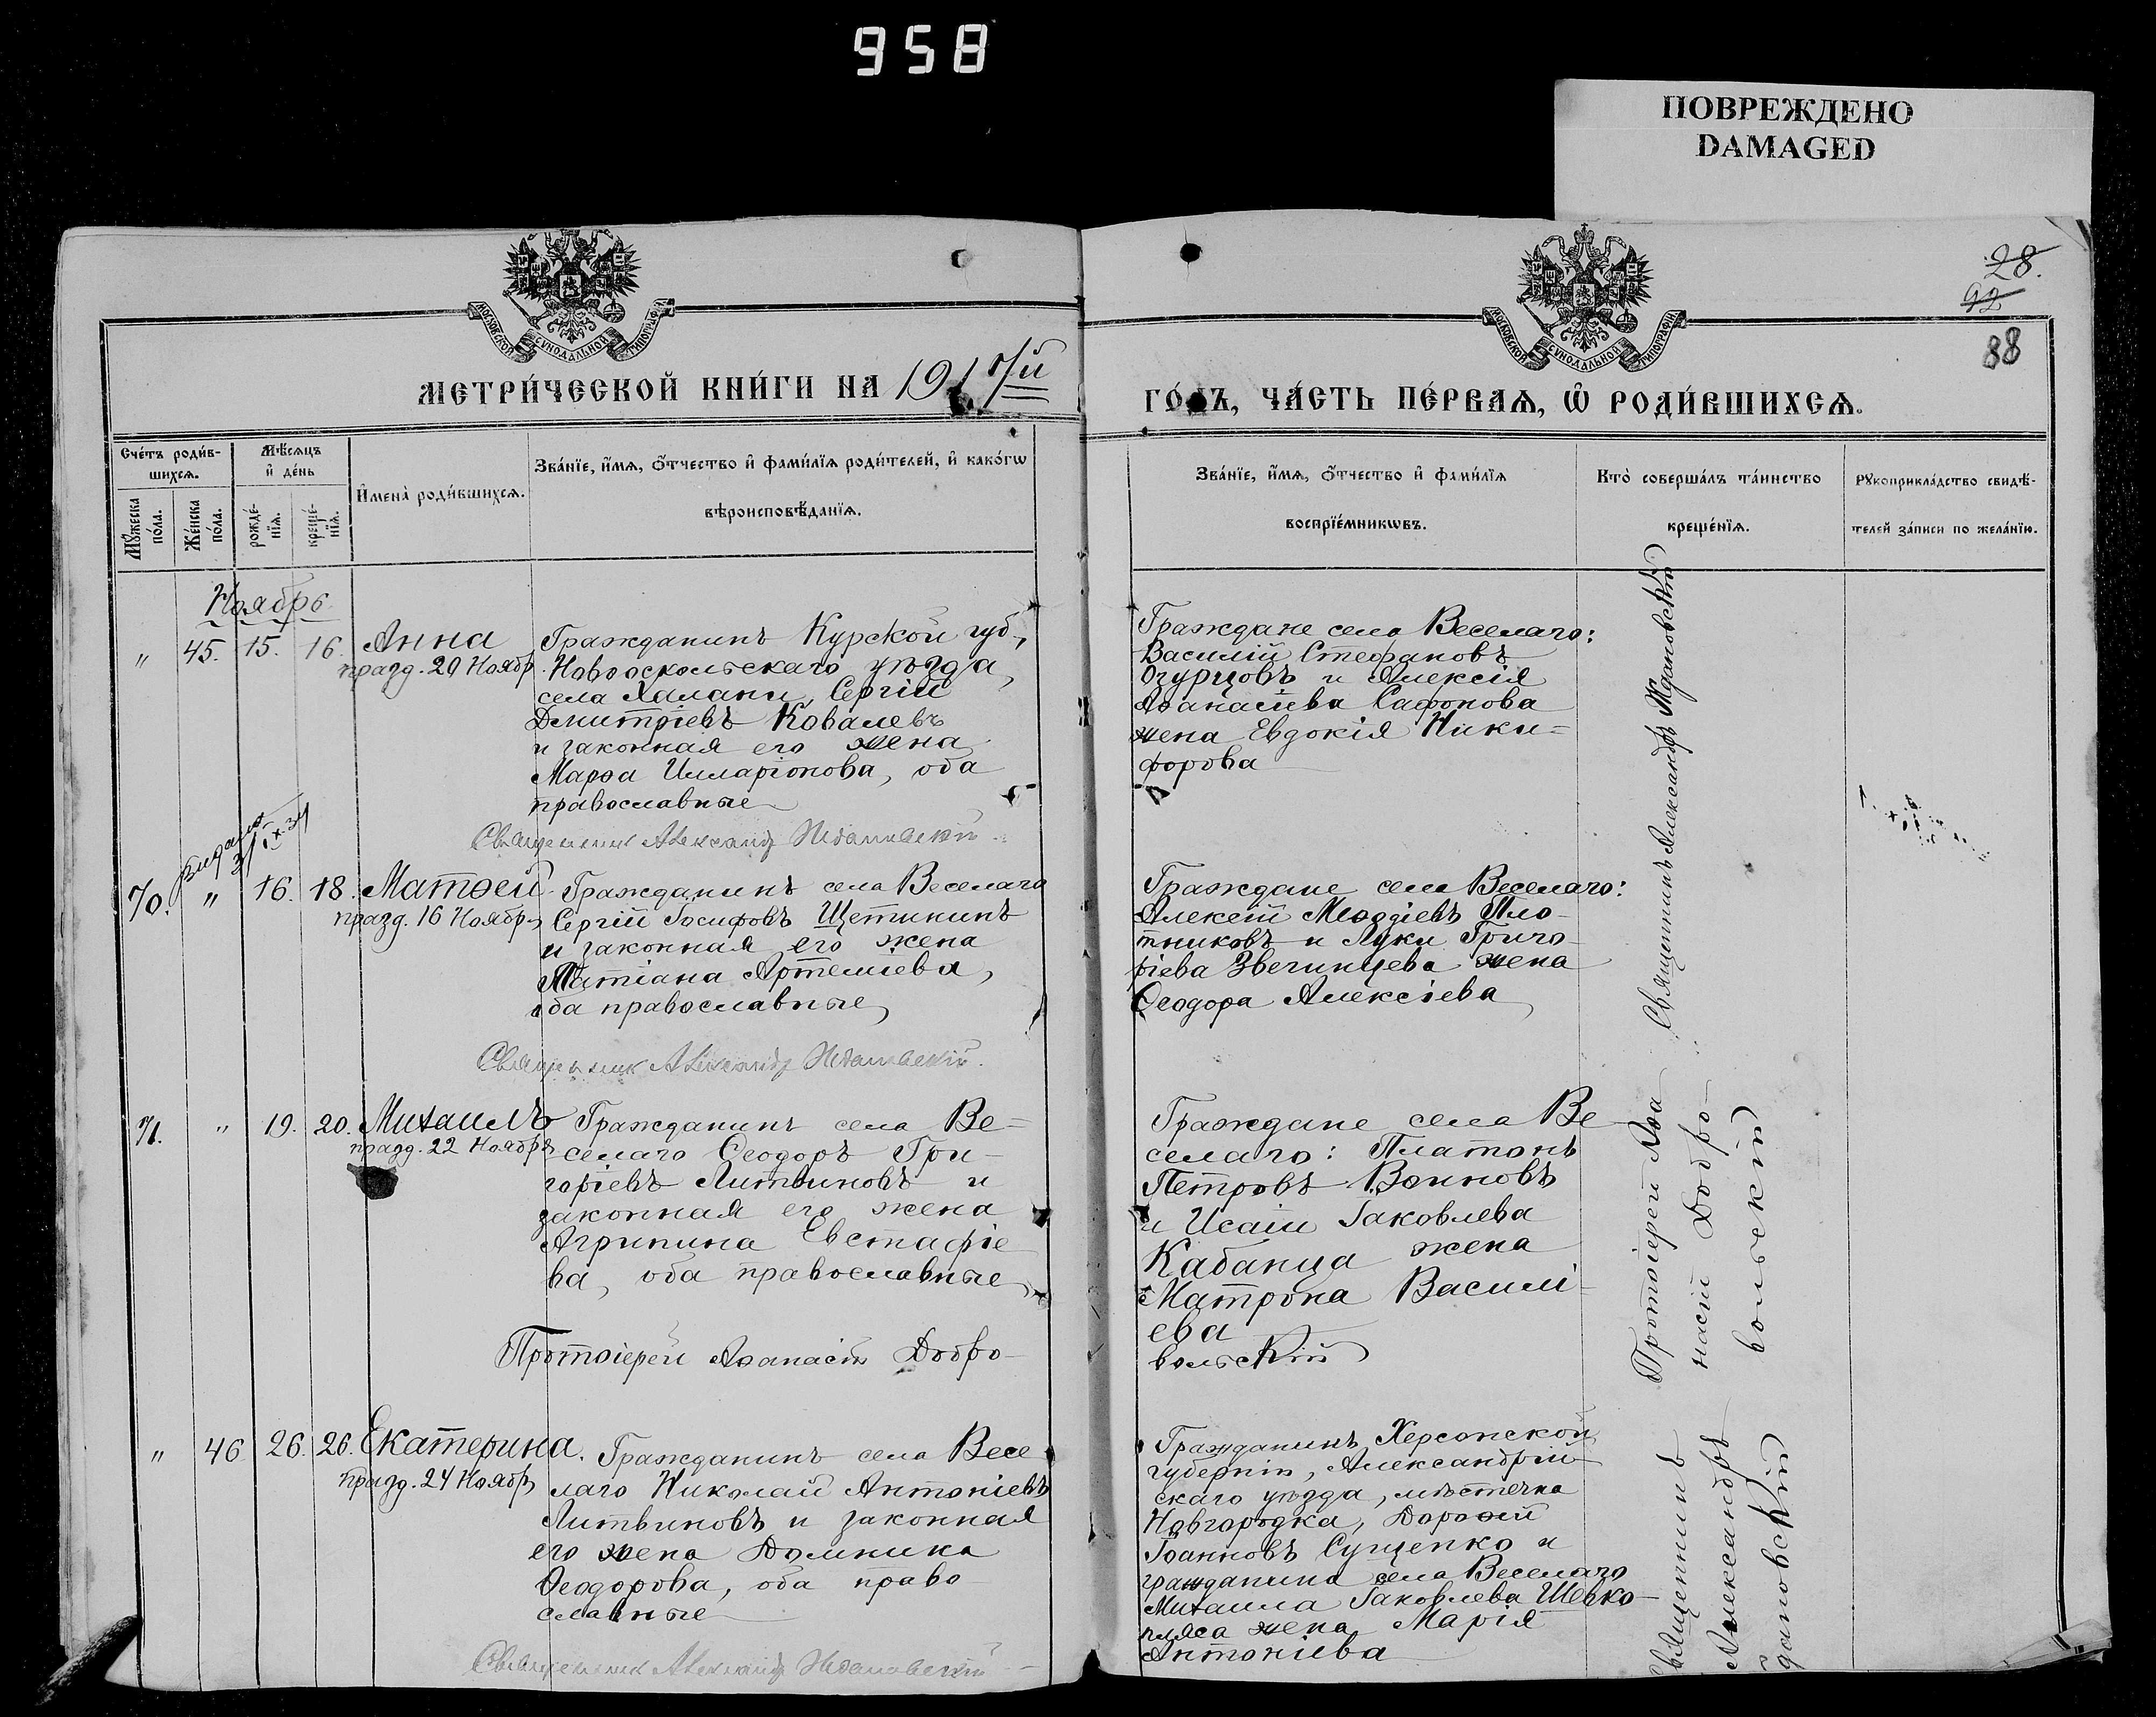 958
ПОВРЕЖДЕНО
DAMAGED
28.
92
88
МОСКОВСКОЙ СѴНОДАЛЬНОЙ ТИПОГРАФІИ
МОСКОВСКОЙ СѴНОДАЛЬНОЙ ТИПОГРАФІИ
МЕТРИ́ЧЕСКОЙ КНИ́ГИ НА 1917й
ГО́ДЪ, ЧА́СТЬ ПЕ́РВАѦ, Ѡ҆ РОДИ́ВШИХСѦ.
Сче́тъ роди́в-
шихсѧ.
Мꙋ́жеска
по́ла.
Же́нска
по́ла.
Мѣ́сѧцъ
и҆ де́нь
рожде́-
нїѧ.
креще́-
нїѧ.
И҆мена̀ роди́вшихсѧ.
Зва́нїе, и҆́мѧ, ѻ҆́тчество и҆ фами́лїѧ роди́телей, и҆ како́гѡ
вѣроисповѣ́данїѧ.
Зва́нїе, и҆́мѧ, ѻ҆́тчество и҆ фами́лїѧ
воспрїе́мникѡвъ.
Кто̀ соверша́лъ та́инство
креще́нїѧ.
Рꙋкоприкла́дство свидѣ́-
телей за́писи по жела́нїю.
Ноябрь
" 45. 15. 16. Анна
празд. 20 Ноябр.
Гражданинъ Курской губ.,
Новооскольскаго уѣзда,
села Халани, Сергій
Дмитріевъ Ковалевъ
и законная его жена
Марѳа Илларіонова, оба
православные
Священник Александр Ждановскій
Граждане села Веселаго:
Василій Стефановъ
Огурцовъ и Алексія
Аѳанасіева Сафонова
жена Евдокія Ники=
форова
Священникъ Александръ Ждановскій
70. " 16. 18. Матѳей
празд. 16 Ноябр.
Гражданинъ села Веселаго
Сергій Іосифовъ Щетининъ
и законная его жена
Татіана Артеміева,
оба православные
Священник Александр Ждановскій.
Граждане села Веселаго:
Алексій Меѳодіевъ Пло-
тниковъ и Луки Григо-
ріева Звегинцева жена
Ѳеодора Алексіева
71. " 19. 20. Михаилъ
празд. 22 Ноября
Гражданинъ села Ве=
селаго Ѳеодоръ Гри-
горіевъ Литвиновъ и
законная его жена
Агрипина Евстафіе
ва, оба православные
Протоіерей Аѳанасій Добро-
вольскій
Граждане села Ве
селаго: Платонъ
Петровъ Воиновъ
и Исаіи Іаковлева
Кабанца жена
Матрона Василі-
ева
Протоіерей Аѳа
насій Добро-
вольскій
" 46 26. 26. Екатерина.
празд. 24 Ноябр.
Гражданинъ села Весе
лаго Николай Антоніевъ
Литвиновъ и законная
его жена Домника
Ѳеодорова, оба право
славные
Священник Александр Ждановскій
Гражданинъ Херсонской
губерніи, Александрій-
скаго уѣзда, мѣстечка
Новгородка, Дороѳей
Іоанновъ Сущенко и
гражданина села Веселаго
Михаила Іаковлева Шевко-
пляса жена Марія
Антоніева
Священникъ
Александръ
Ждановскій